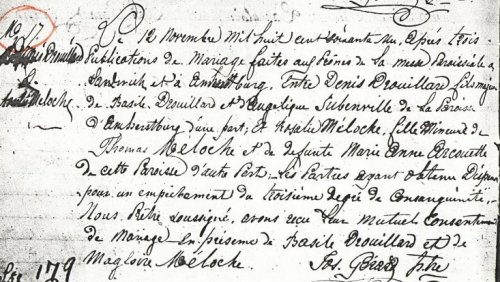 M 17
Le 12 Novembre Mil huit cent soixante Six, Après trois
Denis Drouillard Publications de Mariage faites aux Prônes de la messe Paroissiale à
& Sandwich et à Amherstburg, Entre Denis Drouillard fils majeur
Rosalie Meloche de Basile Drouillard et d'Angelique Subenville de la Paroisse
d'Amherstburg d'une part; Et Rosalie Méloche, fille Mineure de
Thomas Meloche et de défunte Marie Anne Arcouette
de cette Paroisse d'autre Part, Les Parties ayant obtenu Dispense
pour un empêchement du troisième degré de Consanguinité,
Nous, Prêtre soussigné, avons reçu leur Mutuel Consentement
de Mariage en présence de Basile Drouillard et de
Magloire Méloche. Jos. Ptre
179